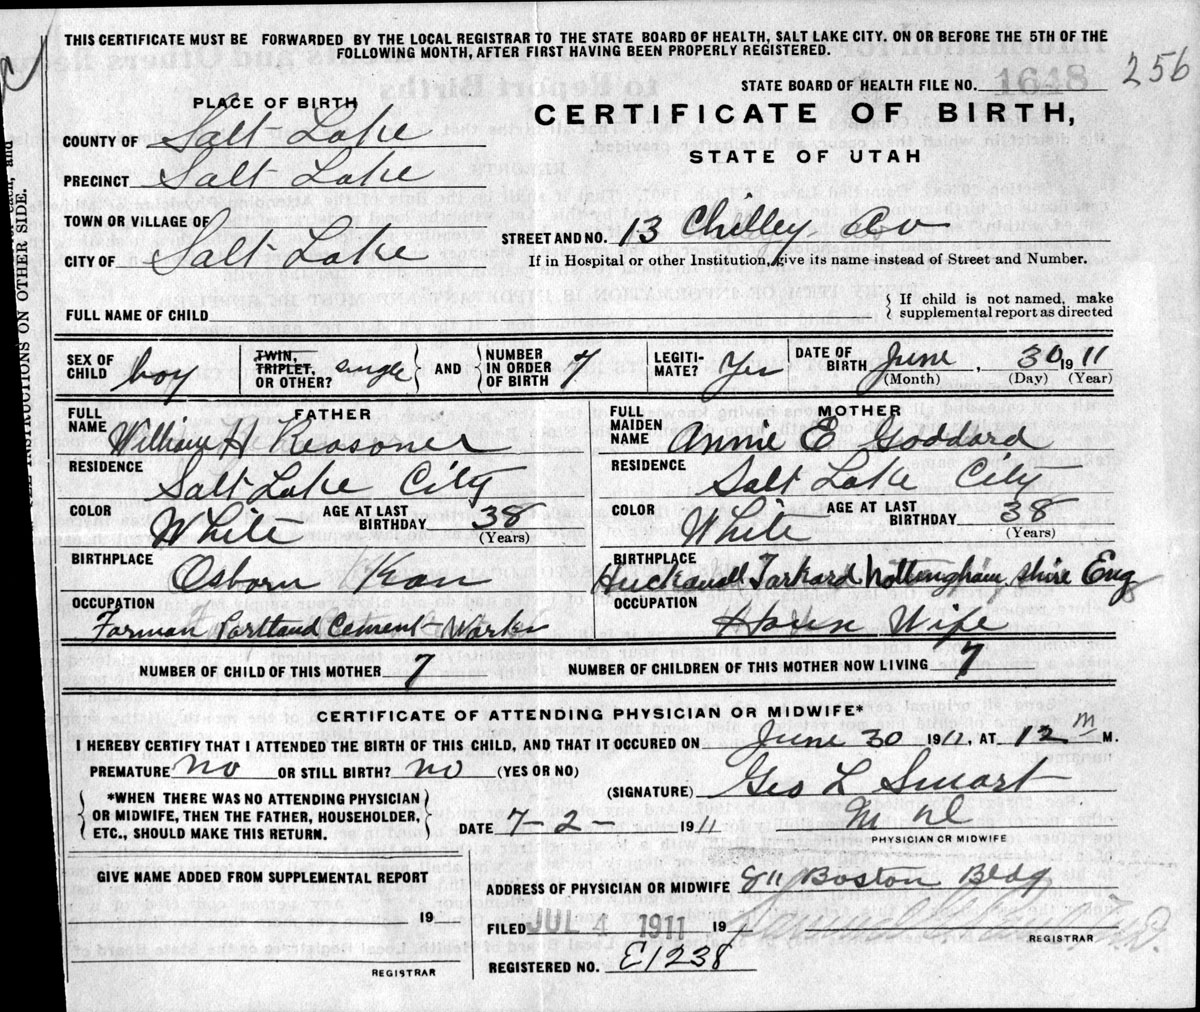 THIS CERTIFICATE MUST BE FORWARDED BY THE LOCAL REGISTRAR TO THE STATE BOARD OF HEALTH, SALT LAKE CITY, ON OR BEFORE THE 5TH OF THE
FOLLOWING MONTH, AFTER FIRST HAVING BEEN PROPERLY REGISTERED.
256
STATE BOARD OF HEALTH FILE NO. 1648
PLACE OF BIRTH
CERTIFICATE OF BIRTH,
STATE OF UTAH
COUNTY OF Salt Lake
PRECINCT Salt Lake
TOWN OR VILLAGE OF
STREET AND NO. 13 Chilley Av
CITY OF Salt Lake
If in Hospital or other Institution, give its name instead of Street and Number.
FULL NAME OF CHILD
If child is not named, make
supplemental report as directed
INSTRUCTIONS ON OTHER SIDE.
SEX OF CHILD boy
TWIN, TRIPLET, OR OTHER? single
AND
NUMBER IN ORDER OF BIRTH 7
LEGITIMATE? Yes
DATE OF BIRTH June, 30 1911
(Month) (Day) (Year)
FATHER
FULL NAME William H Reasoner
RESIDENCE Salt Lake City
COLOR White
AGE AT LAST BIRTHDAY 38
(Years)
BIRTHPLACE Osborn Kan
OCCUPATION Forman Portland Cement Works
MOTHER
FULL MAIDEN NAME Annie E Goddard
RESIDENCE Salt Lake City
COLOR White
AGE AT LAST BIRTHDAY 38
(Years)
BIRTHPLACE Huckanall Torkard Nottingham shire Eng
OCCUPATION Wife
NUMBER OF CHILD OF THIS MOTHER 7
NUMBER OF CHILDREN OF THIS MOTHER NOW LIVING 7
CERTIFICATE OF ATTENDING PHYSICIAN OR MIDWIFE*
I HEREBY CERTIFY THAT I ATTENDED THE BIRTH OF THIS CHILD, AND THAT IT OCCURED ON June 30 1911, AT 12 M M.
PREMATURE no OR STILL BIRTH? no (YES OR NO)
(SIGNATURE) Geo L Smart
*WHEN THERE WAS NO ATTENDING PHYSICIAN
OR MIDWIFE, THEN THE FATHER, HOUSEHOLDER,
ETC., SHOULD MAKE THIS RETURN.
DATE 7-2- 1911
M D
PHYSICIAN OR MIDWIFE
GIVE NAME ADDED FROM SUPPLEMENTAL REPORT
19
REGISTRAR
ADDRESS OF PHYSICIAN OR MIDWIFE 811 Boston Bldg
FILED JUL 4 1911 19
REGISTRAR
REGISTERED NO. E1238